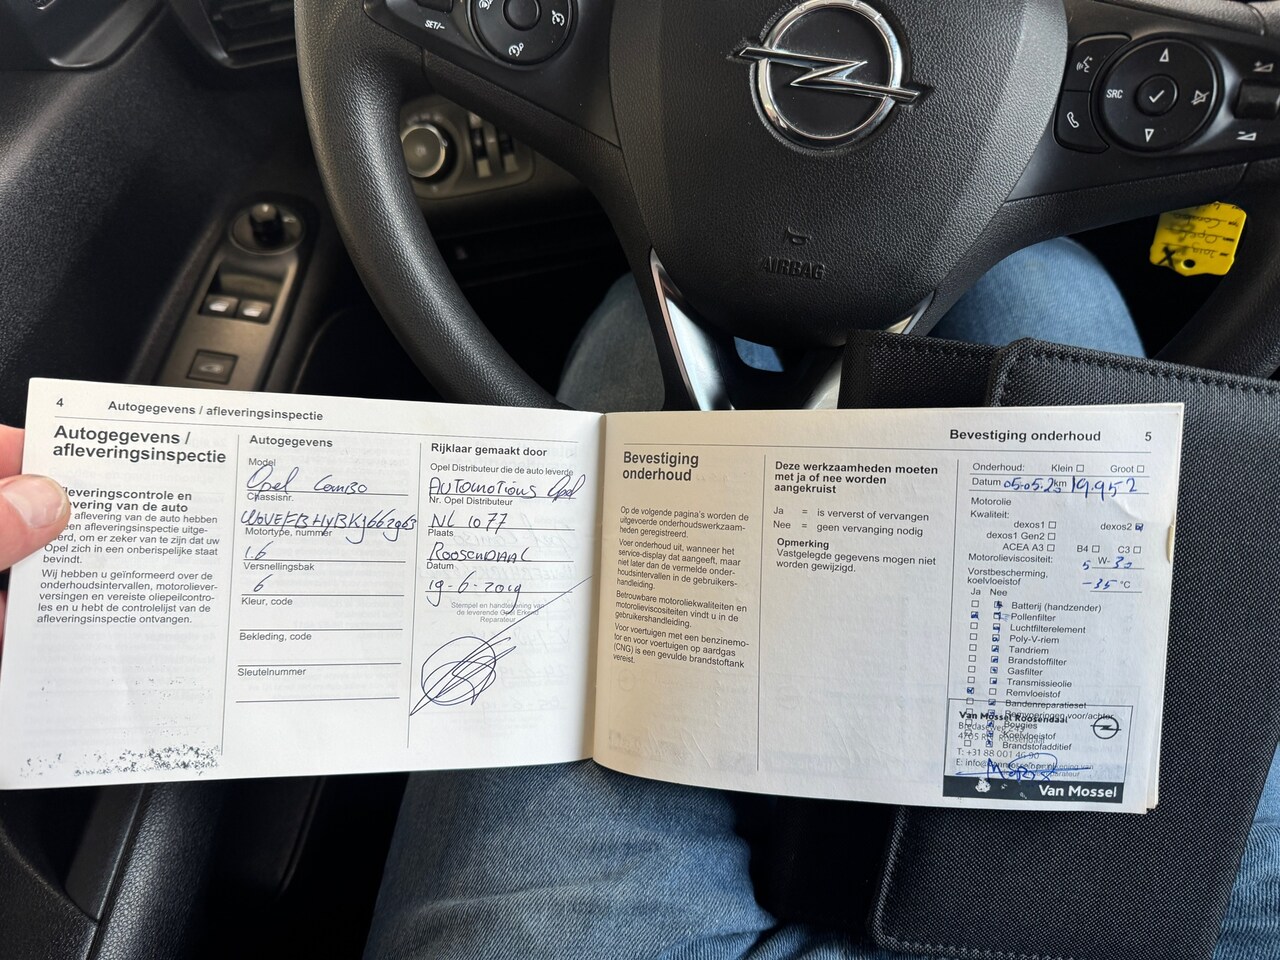 SET/-
SRC
AIRBAG
4
Autogegevens / afleveringsinspectie
Autogegevens /
afleveringsinspectie
leveringscontrole en
evering van de auto
aflevering van de auto hebben
een afleveringsinspectie uitge-
erd, om er zeker van te zijn dat uw
Opel zich in een onberispelijke staat
bevindt.
Wij hebben u geïnformeerd over de
onderhoudsintervallen, motorolie­ver-
versingen en vereiste oliepeilcontro-
les en u hebt de controlelijst van de
afleveringsinspectie ontvangen.
Autogegevens
Model
Opel Combo
Chassisnr.
Motortype, nummer
1.6
Versnellingsbak
6
Kleur, code
Bekleding, code
Sleutelnummer
Rijklaar gemaakt door
Opel Distributeur die de auto leverde
Automotions Opel
Nr. Opel Distributeur
NL 1077
Plaats
Roosendaal
Datum
19-6-2019
Stempel en handtekening van
de leverende Opel Erkend
Reparateur
Bevestiging onderhoud
5
Bevestiging
onderhoud
Op de volgende pagina's worden de
uitgevoerde onderhoudswerkzaam-
heden geregistreerd.
Voer onderhoud uit, wanneer het
service-display dat aangeeft, maar
niet later dan de vermelde onder-
houdsintervallen in de gebruikers-
handleiding.
Betrouwbare motoroliekwaliteiten en
motorolieviscositeiten vindt u in de
gebruikershandleiding.
Voor voertuigen met een benzinemo-
tor en voor voertuigen op aardgas
(CNG) is een gevulde brandstoftank
vereist.
Deze werkzaamheden moeten
met ja of nee worden
aangekruist
Ja = is ververst of vervangen
Nee = geen vervanging nodig
Opmerking
Vastgelegde gegevens mogen niet
worden gewijzigd.
Onderhoud: Klein Groot
Datum 05.05.2 km 19.952
Motorolie
Kwaliteit:
dexos1 dexos2
dexos1 Gen2
ACEA A3 B4 C3
Motorolieviscositeit: 5 W- 30
Vorstbescherming,
koelvloeistof -35 °C
Ja Nee
Batterij (handzender)
Pollenfilter
Luchtfilterelement
Poly-V-riem
Tandriem
Brandstoffilter
Gasfilter
Transmissieolie
Remvloeistof
Bandenreparatieset
Remvoeringen voor/achter
Bougies
Koelvloeistof
Brandstofadditief
Van Mossel Roosendaal
T: +31 88 001 46 90
Van Mossel